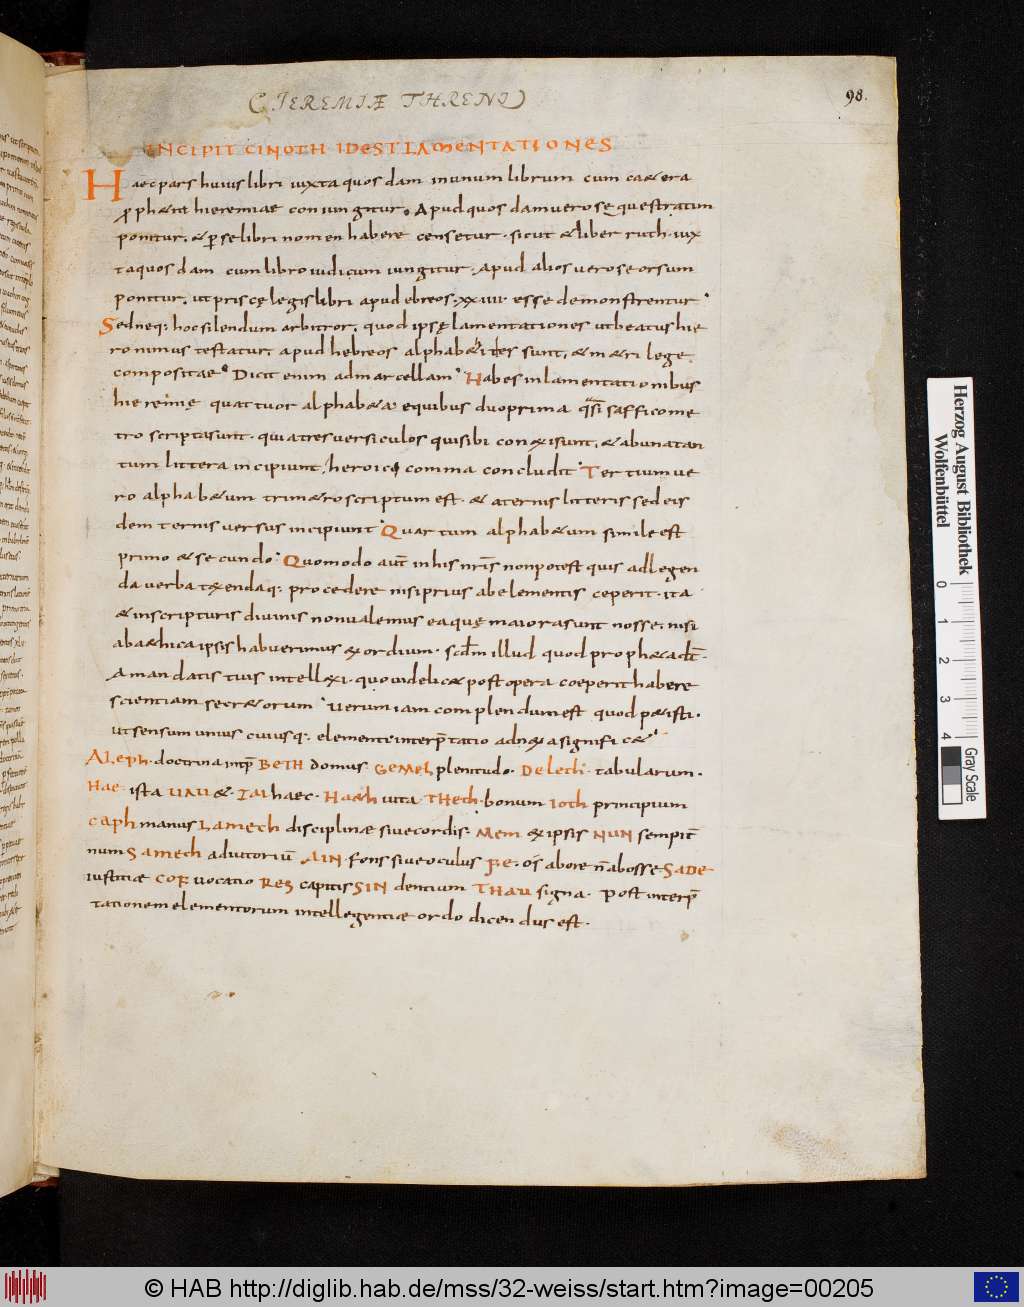 C. IEREMIÆ THRENI
98.
INCIPIT CINOTH IDEST LAMENTATIONES
Haec pars huius libri iuxta quosdam in unum librum cum caetera
prophaetia hieremiae coniungitur. Apud quosdam uero seque stratim
ponitur. & per se libri nomen habere censetur. sicut & liber ruth. iux
ta quosdam cum libro iudicum iungitur. apud alios uero seorsum
ponitur. ut priscę legis libri apud ebreos. xxiiii. esse demonstrentur.
Sed neq: hoc silendum arbitror. quod ipsę lamentationes ut beatus hie
ronimus testatur. apud hebreos alphab&iter sunt. & m&ri lege
compositae. Dicit enim ad marcellam. Habes in lamentationibus
hieremię quattuor alphab&a equibus duo prima qsi saffico me
tro scripta sunt. quia tres uersiculos qui sibi conexi sunt. & ab una tan
tum littera incipiunt. heroico comma concludit. Tertium ue
ro alphab&um trim&ro scriptum est. & a ternis litteris sed eis
dem terni uersus incipiunt. Quartum alphab&um simile est
primo & secundo. Quomodo aut in his nris non potest quis ad legen
da uerba texendaq: procedere nisi prius ab elementis ceperit. ita
& in scripturis diuinis non ualemus ea quę maiora sunt nosse. nisi
ab &hica ipsis habuerimus exordium. scdm illud quod proph&a dt.
A mandatis tuis intellexi. quo uidelic& post opera coeperit habere
scientiam secr&orum. Uerum iam complendum est quod p& isti.
ut sensum unius cuiusq: elementi interp̄tatio adnexa signific&.
Aleph. doctrina intp BETH domus. GEMEL plenitudo. Deleth. tabularum.
Hae ista UAU &. ZAI haec. Haeth uita THeth. bonum Ioth principium
CAph manus LAMECH disciplinæ siue cordis. MEM ex ipsis NUN sempit̄
num SAMECH adiutoriū AIN. fons siue oculus PE. os abore n̄ ab osse SADE
iustitiæ COPH uocatio RES capitis SIN dentium THAU signa. Post interp̄
tationem elementorum intellegentiæ ordo dicendus est.
Herzog August Bibliothek
Wolfenbüttel
0 1 2 3 4
Gray Scale
© HAB http://diglib.hab.de/mss/32-weiss/start.htm?image=00205